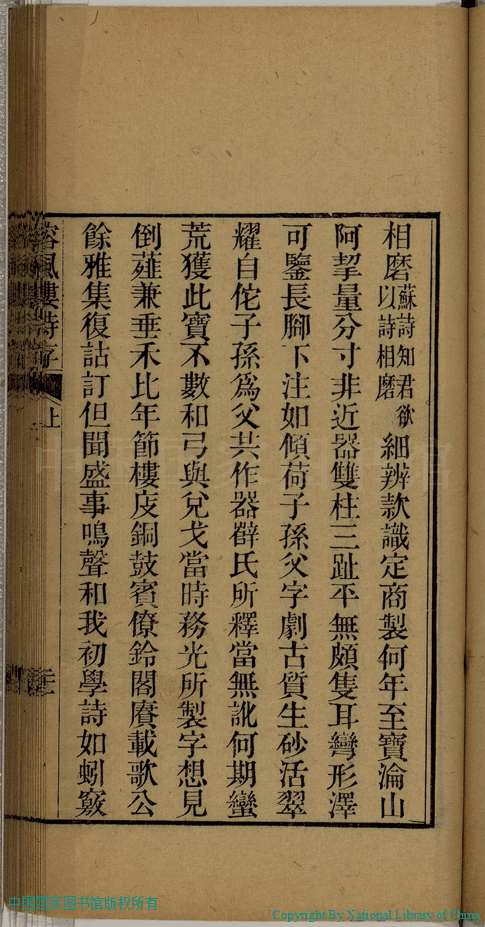 相磨蘇詩知君欲以詩相磨細辨款識定商製何年至寶淪山
阿挈量分寸非近器雙柱三趾平無頗隻耳彎形澤
可鑒長腳下注如傾荷子孫父字劇古質生砂活翠
耀自佗子孫爲父共作器薛氏所釋當無訛何期蠻
荒獲此寶不數和弓與兌戈當時務光所製字想見
倒薤兼垂禾比年節樓庋銅鼓賓僚鈴閣賡載歌公
餘雅集復詁訂但聞盛事鳴聲和我初學詩如蚓竅
風樓詩存
上
中国国家图书馆版权所有
Copyright By National Library of China